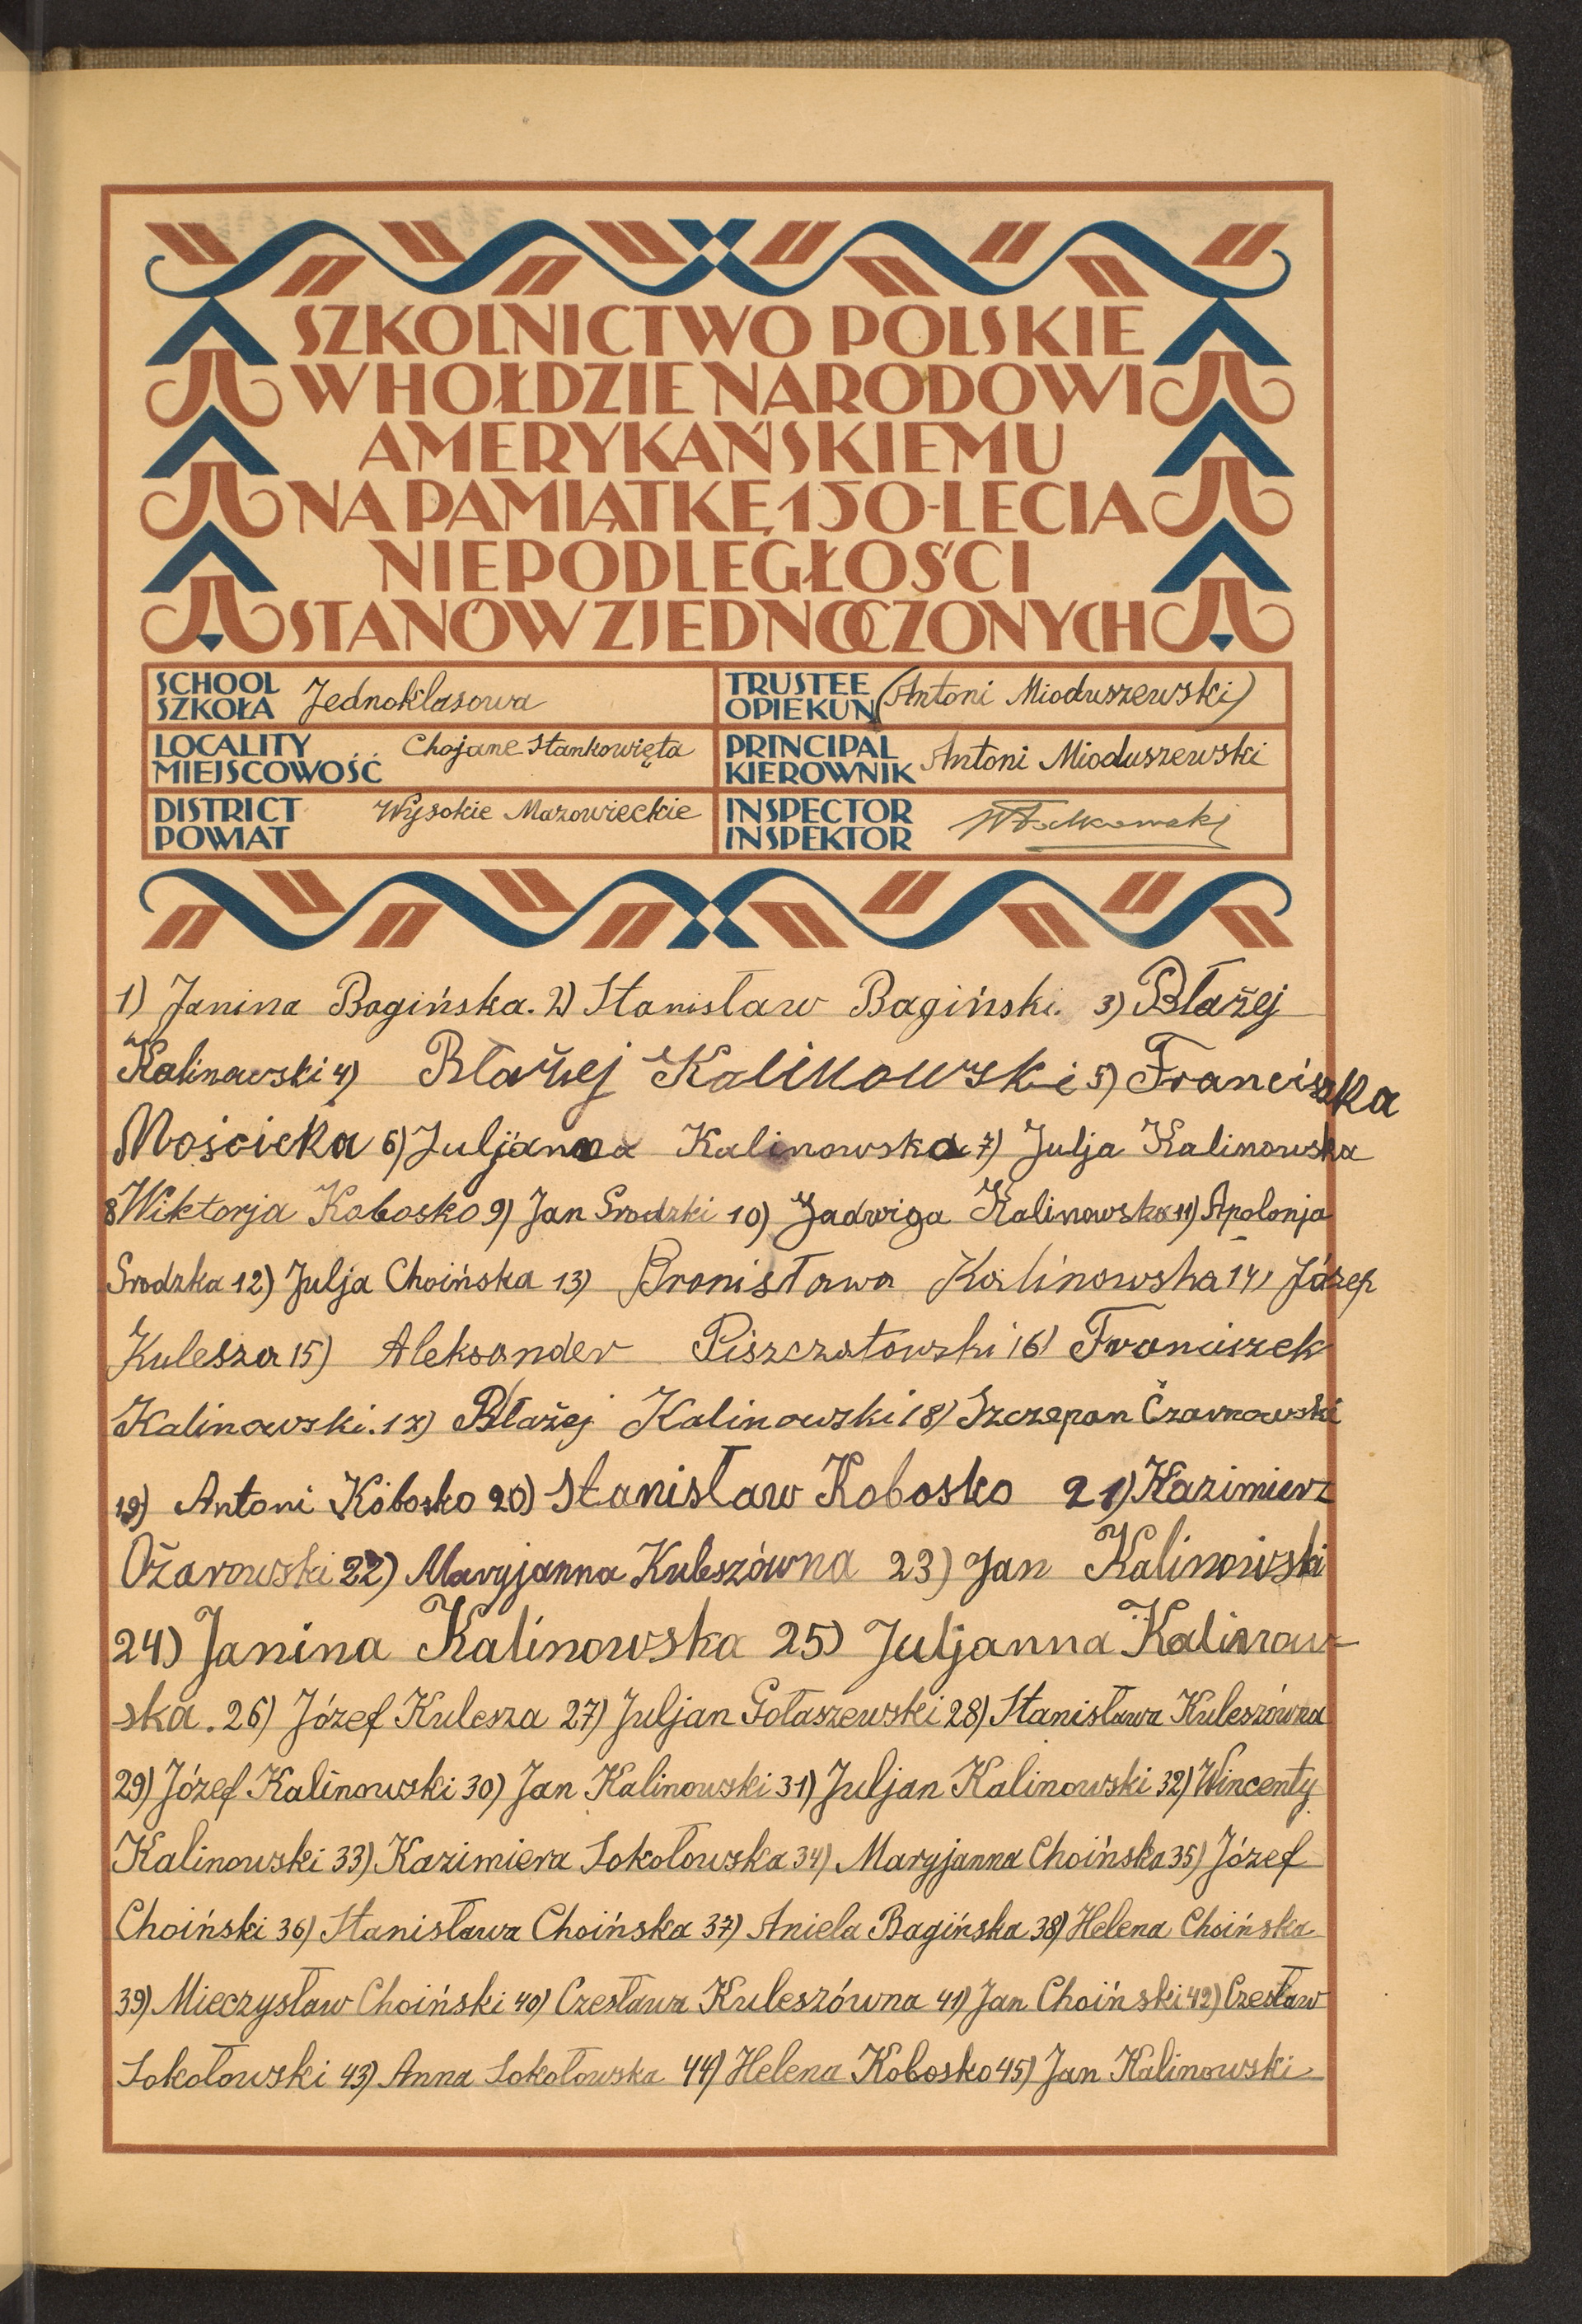 SZKOLNICTWO POLSKIE
W HOŁDZIE NARODOWI
AMERYKAŃSKIEMU
NA PAMIĄTKĘ 150-LECIA
NIEPODLEGŁOŚCI
STANÓW ZJEDNOCZONYCH
SCHOOL
SZKOŁA Jednoklasowa
TRUSTEE
OPIEKUN (Antoni Mioduszewski)
LOCALITY
MIEJSCOWOŚĆ Chojane Stankowięta
PRINCIPAL
KIEROWNIK Antoni Mioduszewski
DISTRICT
POWIAT Wysokie Mazowieckie
INSPECTOR
INSPEKTOR
1) Janina Bagińska. 2) Stanisław Bagiński. 3) Błażej
Kalinowski 4) Błażej Kalinowski 5) Franciszka
Mościcka 6) Juljanna Kalinowska 7) Julja Kalinowska
8 Wiktorja Kobosko 9) Jan Srodzki 10) Jadwiga Kalinowska 11) Apolonja
Srodzka 12) Julja Choińska 13) Bronisława Kalinowska 14) Józep
Kulesza 15) Aleksander Piszczatowski 16) Franciszek
Kalinowski. 17) Błażej Kalinowski 18) Szczepan Czarnowski
19) Antoni Kobosko 20) Stanisław Kobosko 21) Kazimierz
Ożarowski 22) Maryjanna Kuleszówna 23) Jan Kalinowski
24) Janina Kalinowska 25) Juljanna Kalinow-
ska. 26) Józef Kulesza 27) Juljan Gołaszewski 28) Stanisława Kuleszówna
29) Józef Kalinowski 30) Jan Kalinowski 31) Juljan Kalinowski 32) Wincenty
Kalinowski 33) Kazimiera Sokołowska 34) Maryjanna Choińska 35) Józef
Choiński 36) Stanisława Choińska 37) Aniela Bagińska 38) Helena Choińska
39) Mieczysław Choiński 40) Czesława Kuleszówna 41) Jan Choiński 42) Czesław
Sokołowski 43) Anna Sokołowska 44) Helena Kobosko 45) Jan Kalinowski